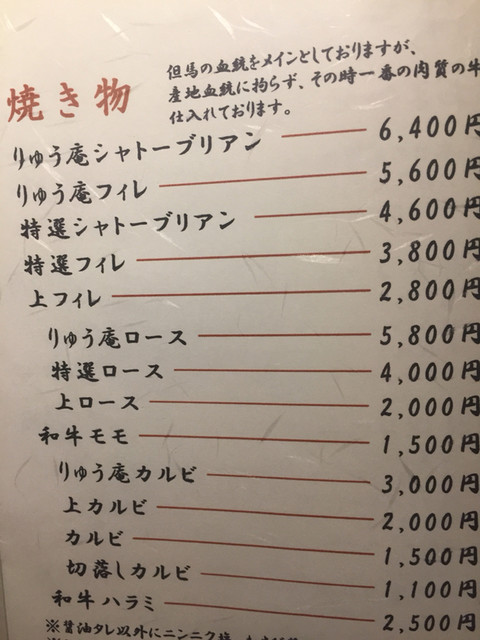 焼き物
但馬の血統をメインとしておりますが、
産地血統に拘らず、その時一番の肉質の牛
仕入れております。
りゅう庵シャトーブリアン 6,400円
りゅう庵フィレ 5,600円
特選シャトーブリアン 4,600円
特選フィレ 3,800円
上フィレ 2,800円
りゅう庵ロース 5,800円
特選ロース 4,000円
上ロース 2,000円
和牛モモ 1,500円
りゅう庵カルビ 3,000円
上カルビ 2,000円
カルビ 1,500円
切落しカルビ 1,100円
和牛ハラミ 2,500円
※醤油タレ以外にニンニク